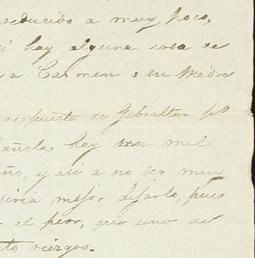 reducido a muy poco,
si hay alguna cosa de
a Carmen o su Madre
respuesta de Gibraltar
españolas hay mil
año, y asi a no ser muy
seria mejor dejarlo, pues
el peor, que uno de
riesgos.